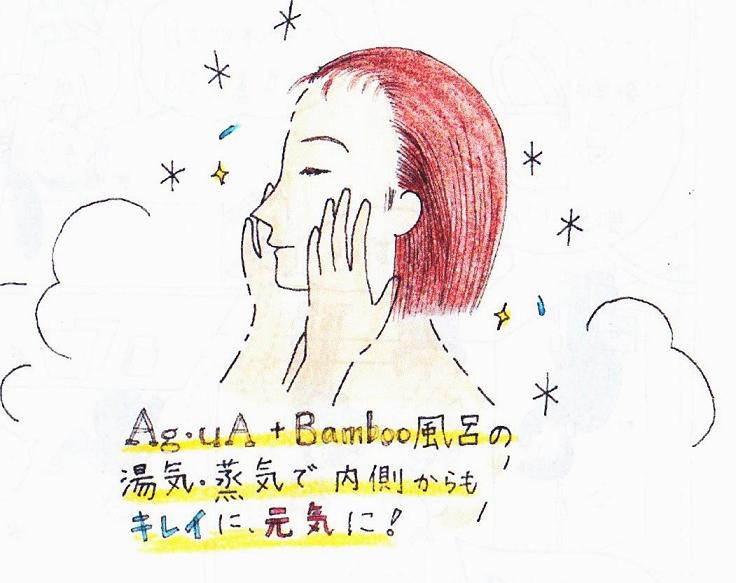 Ag・uA+Bamboo風呂の
湯気・蒸気で内側からも
キレイに、元気に!